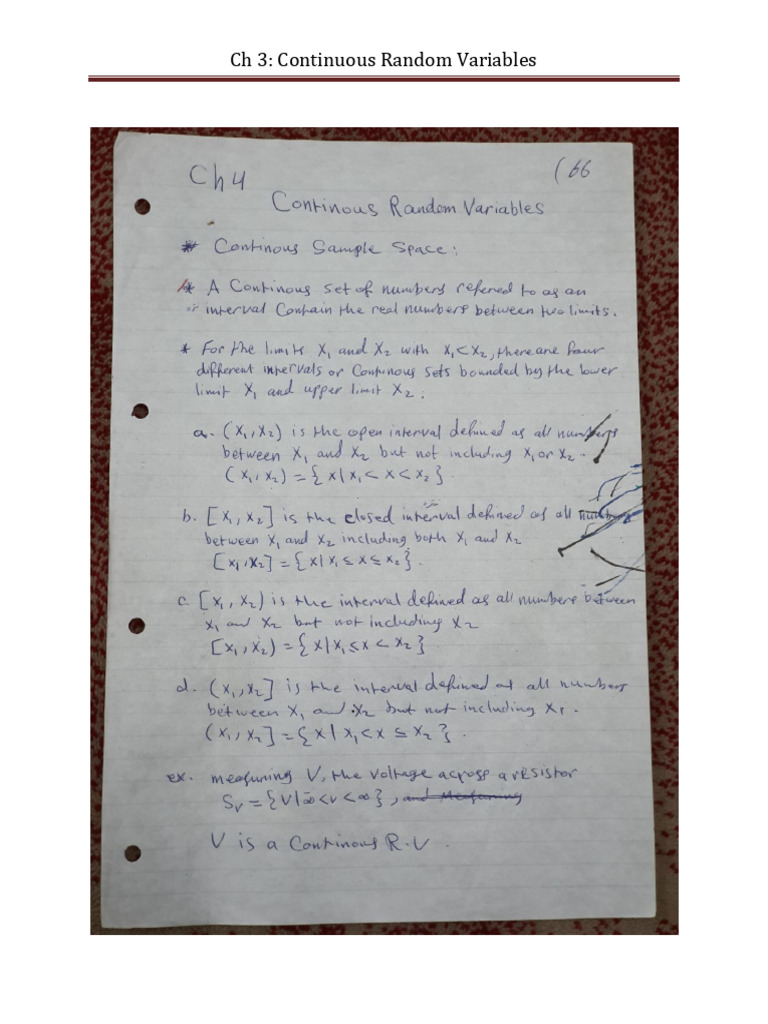 Ch 3: Continuous Random Variables
Ch 4
(66
Continous Random Variables
* Continous Sample Space:
* A Continous set of numbers refered to as an
interval Contain the real numbers between two limits.
* For the limits X₁ and X₂ with X₁<X₂, there are four
different intervals or Continous sets bounded by the lower
limit X₁ and upper limit X₂.
a. (X₁, X₂) is the open interval defined as all numbers
between X₁ and X₂ but not including X₁ or X₂.
(X₁, X₂) = { X | X₁ < X < X₂ }.
b. [X₁, X₂] is the closed interval defined as all numbers
between X₁ and X₂ including both X₁ and X₂
[X₁, X₂] = { X | X₁ ≤ X ≤ X₂ }.
c. [X₁, X₂) is the interval defined as all numbers between
X₁ and X₂ but not including X₂
[X₁, X₂) = { X | X₁ ≤ X < X₂ }
d. (X₁, X₂] is the interval defined as all numbers
between X₁ and X₂ but not including X₁.
(X₁, X₂] = { X | X₁ < X ≤ X₂ }.
ex. measuring V, the voltage across a resistor
Sᵥ = { V | -∞ < v < ∞ }, and Measuring
V is a Continous R.V.